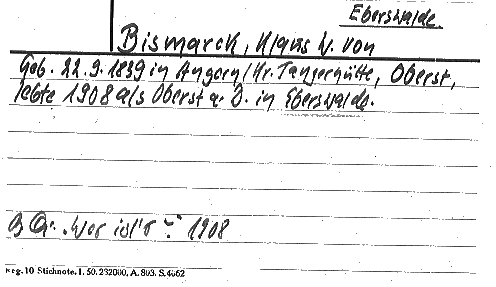 Eberswalde.
Bismarck, Klaus v. von
Geb. 22.9.1839 in Angern/Kr. Tangerhütte, Oberst,
lebte 1908 als Oberst a. D. in Eberswalde.
BQ: "Wer ist's?" 1908
Reg. 10 Stichnote. I. 50. 232000, A. 803. S. 4662